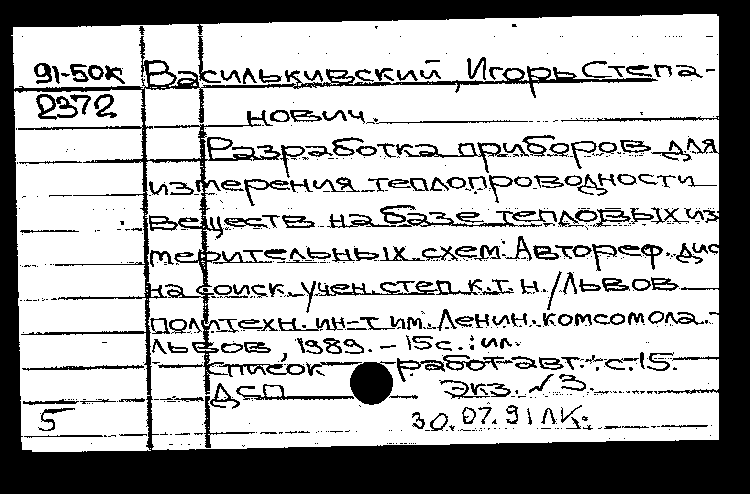 91-50К Василькивский, Игорь Степа-
2372 нович.
Разработка приборов для
измерения теплопроводности
веществ на базе тепловых из
мерительных схем: Автореф. дис
на соиск. учен. степ к.т.н. /Львов.
политехн. ин-т им. Ленин. комсомола.-
Львов, 1989. – 15с.: ил.
Список работ авт.: с.15.
ДСП Экз. √ 3.
5 30.07.91 ЛК.